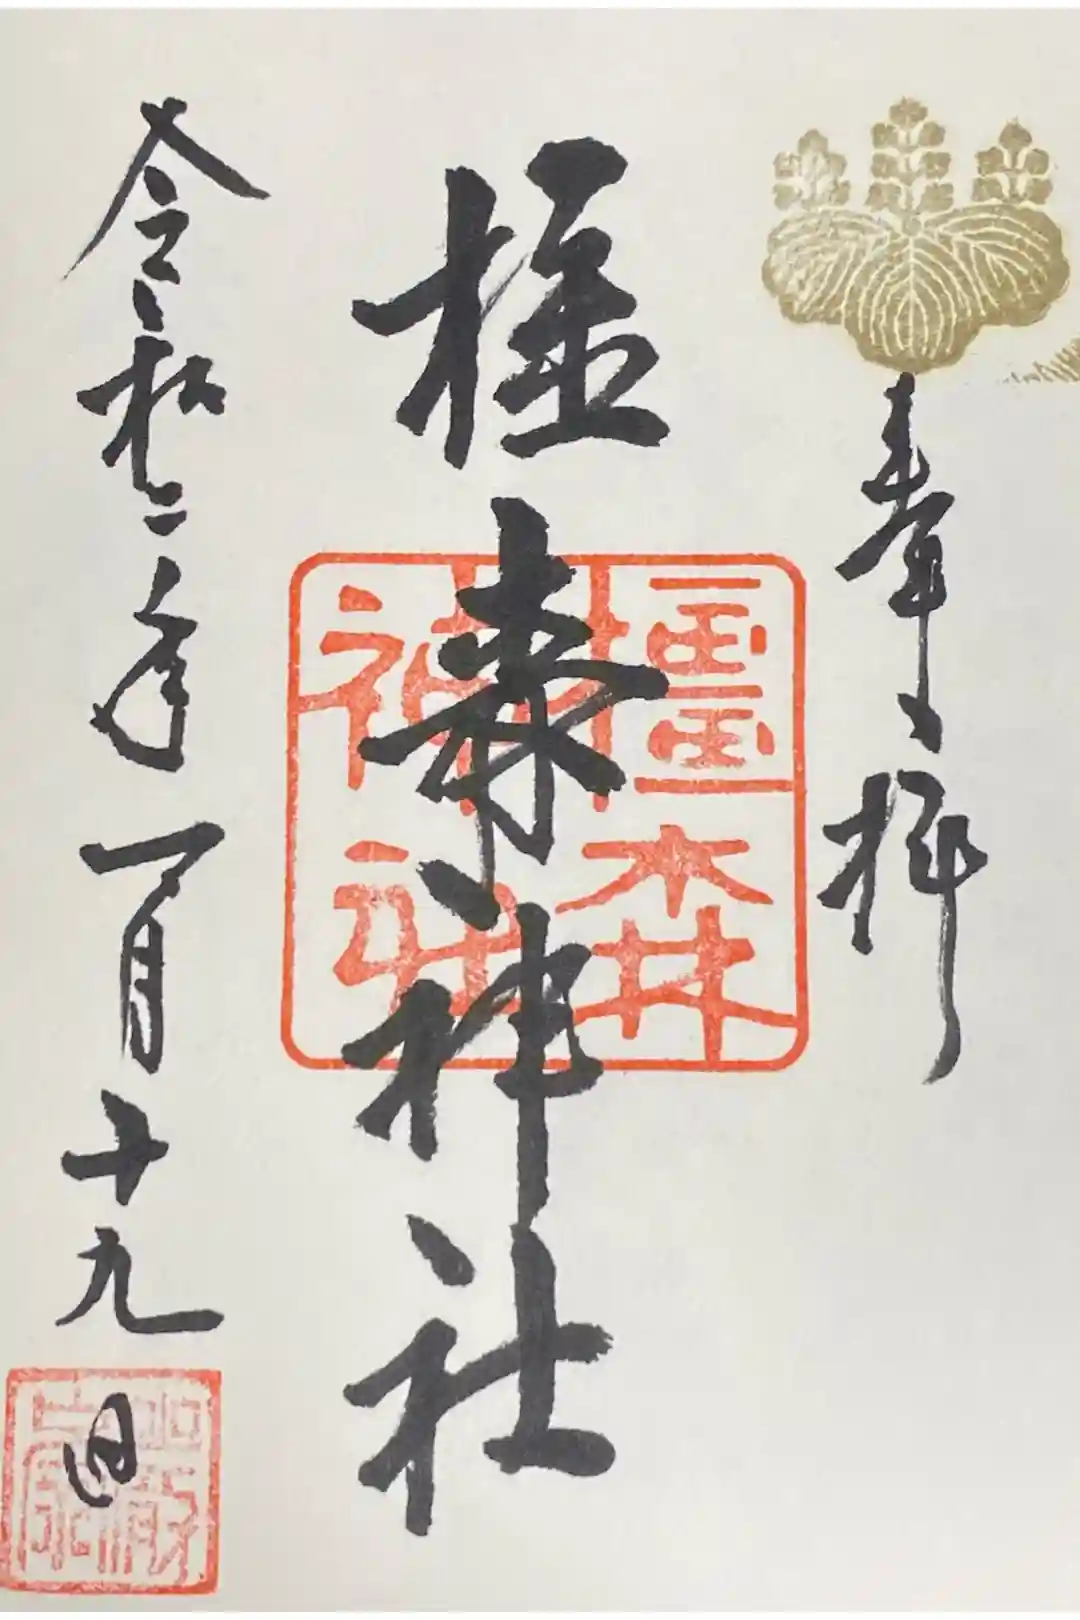 奉拝
橿森神社
橿森
神社
令和二年一月十九日